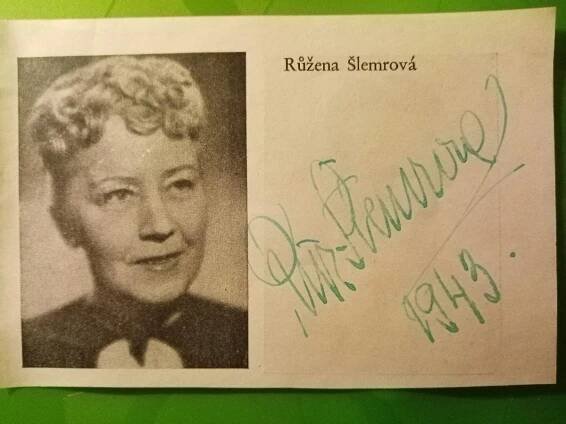 Růžena Šlemrová
Růž. Šlemrová
1943.